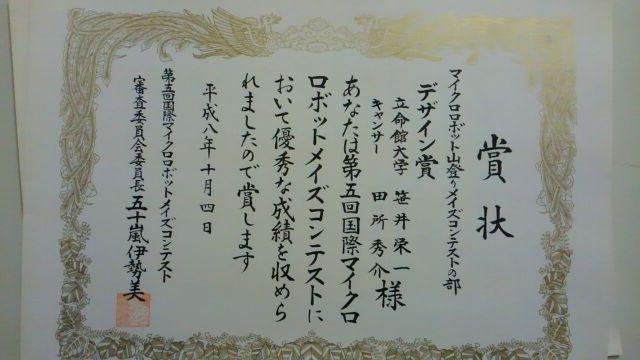 賞状
マイクロロボット山登りメイズコンテストの部
デザイン賞
立命館大学 笹井栄一
キャンサー 田所秀介 様
あなたは第五回国際マイクロ
ロボットメイズコンテストに
おいて優秀な成績を収めら
れましたので賞します
平成八年十月四日
第五回国際マイクロロボットメイズコンテスト
審査委員会委員長 五十嵐伊勢美